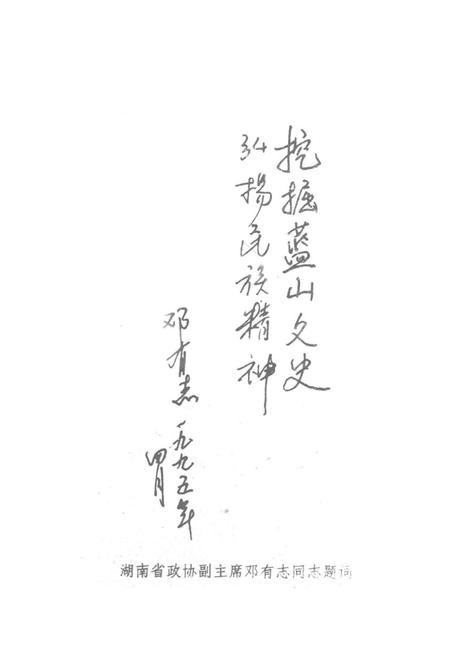 挖掘蓝山文史
弘揚民族精神
邓有志
一九九五年
四月
湖南省政协副主席邓有志同志题词